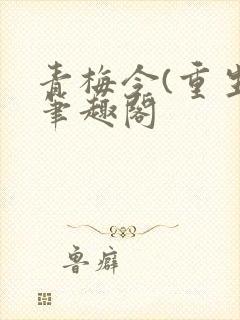 青梅令(重生
笔趣阁
鲁癖